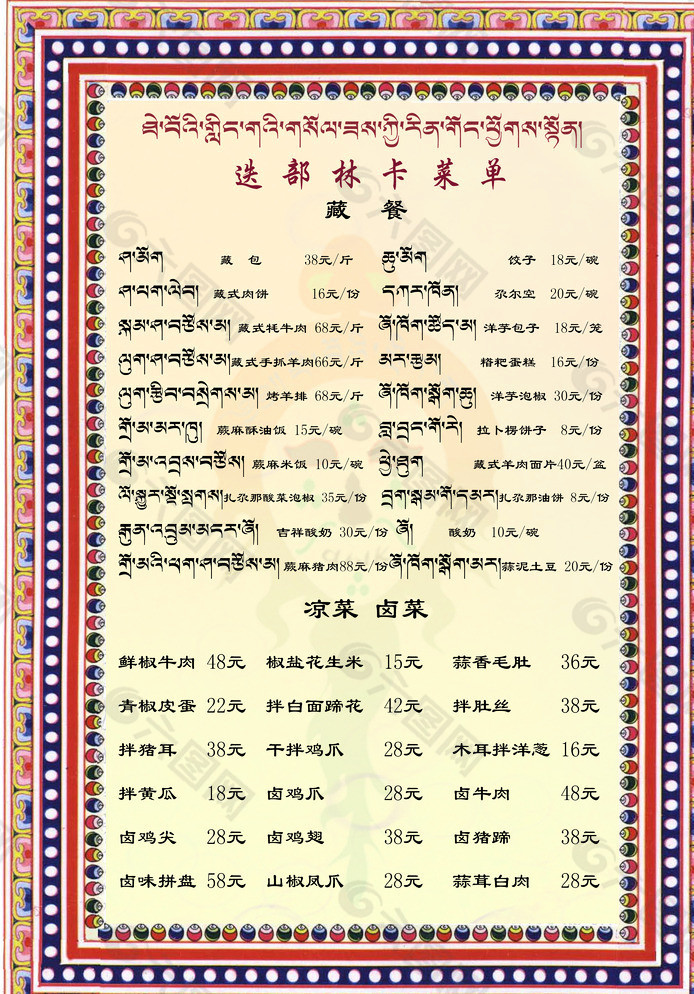 ཐེ་བོའི་གླིང་གའི་གསོལ་ཟས་ཀྱི་རིན་གོང་ཕྱོགས་སྟོན།
迭部林卡菜单
藏餐
ཤ་མོག 藏包 38元/斤 ཆུ་མོག 饺子 18元/碗
ཤ་ཕག་ལེབ། 藏式肉饼 16元/份 དཀར་ཁོན། 尕尔空 20元/碗
སྐམ་ཤ་བཙོས་མ། 藏式牦牛肉 68元/斤 ཞོ་ཁོག་ཚོད་མ། 洋芋包子 18元/笼
ལུག་ཤ་བཙོས་མ། 藏式手抓羊肉66元/斤 མར་རྩམ། 糌粑蛋糕 16元/份
ལུག་རྩིབ་བསྲེགས་མ། 烤羊排 68元/斤 ཞོ་ཁོག་སྒོག་ཆུ། 洋芋泡椒 30元/份
གྲོ་མ་མར་ཁུ། 蕨麻酥油饭 15元/碗 བླ་བྲང་གོ་རེ། 拉卜楞饼子 8元/份
གྲོ་མ་འབྲས་བཙོས། 蕨麻米饭 10元/碗 ཕྱེ་ཐུག 藏式羊肉面片40元/盆
ལོ་སྐྱུར་སྔོ་སྲགས། 扎尕那酸菜泡椒 35元/份 བྲག་སྐམ་གོ་དམར། 扎尕那油饼 8元/份
རྒུན་འབྲུམ་མངར་ཞོ། 吉祥酸奶 30元/份 ཞོ། 酸奶 10元/碗
གྲོ་མའི་ཕག་ཤ་བཙོས་མ། 蕨麻猪肉88元/份 ཞོ་ཁོག་སྒོག་མར། 蒜泥土豆 20元/份
凉菜 卤菜
鲜椒牛肉 48元 椒盐花生米 15元 蒜香毛肚 36元
青椒皮蛋 22元 拌白面蹄花 42元 拌肚丝 38元
拌猪耳 38元 干拌鸡爪 28元 木耳拌洋葱 16元
拌黄瓜 18元 卤鸡爪 28元 卤牛肉 48元
卤鸡尖 28元 卤鸡翅 38元 卤猪蹄 38元
卤味拼盘 58元 山椒凤爪 28元 蒜茸白肉 28元